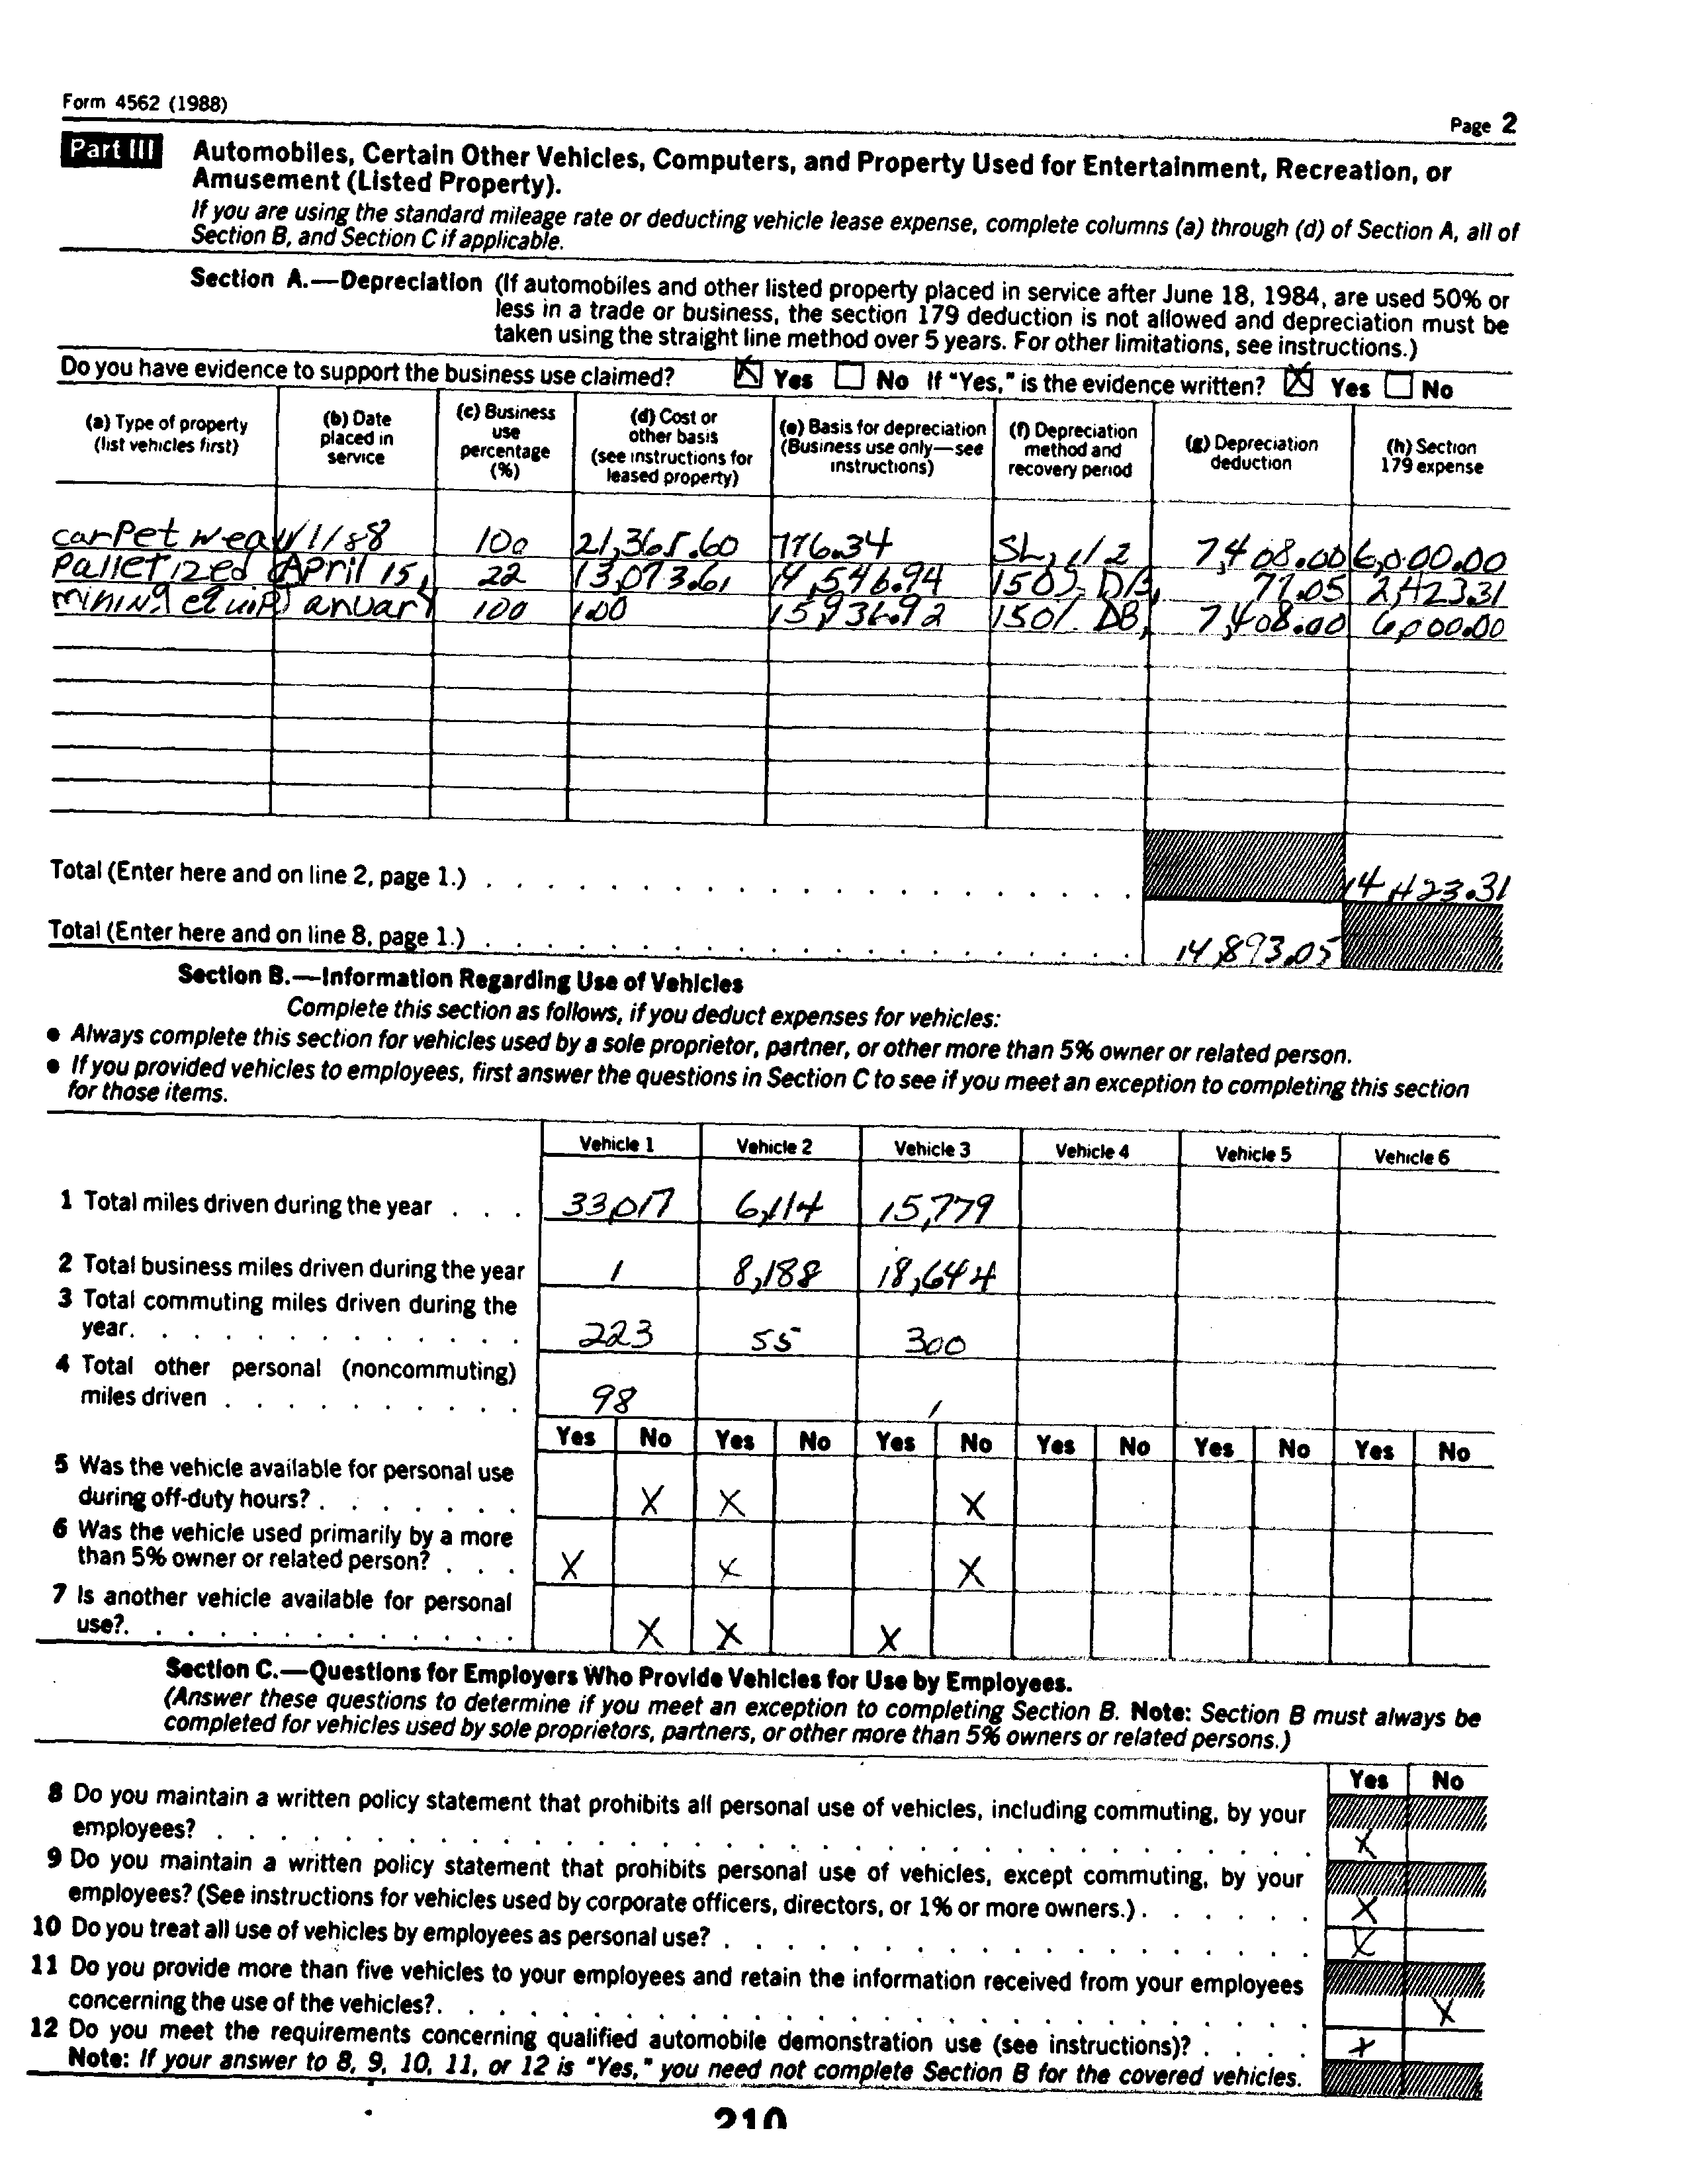 Form 4562 (1988)
Page 2
Part III Automobiles, Certain Other Vehicles, Computers, and Property Used for Entertainment, Recreation, or
Amusement (Listed Property).
If you are using the standard mileage rate or deducting vehicle lease expense, complete columns (a) through (d) of Section A, all of
Section B, and Section C if applicable.
Section A.—Depreciation (If automobiles and other listed property placed in service after June 18, 1984, are used 50% or
less in a trade or business, the section 179 deduction is not allowed and depreciation must be
taken using the straight line method over 5 years. For other limitations, see instructions.)
Do you have evidence to support the business use claimed? X Yes No If "Yes," is the evidence written? X Yes No
(a) Type of property (list vehicles first) (b) Date placed in service (c) Business use percentage (%) (d) Cost or other basis (see instructions for leased property) (e) Basis for depreciation (Business use only—see instructions) (f) Depreciation method and recovery period (g) Depreciation deduction (h) Section 179 expense
carpet wea 1/1/88 100 21,365.60 776.34 SL, 1/2 7,408.00 6,000.00
Palletized April 15, 22 13,073.61 14,546.94 150% DB, 77.05 2,423.31
mining equip January 100 1.00 15,936.92 150% DB, 7,408.00 6,000.00
Total (Enter here and on line 2, page 1.) 14,423.31
Total (Enter here and on line 8, page 1.) 14,893.05
Section B.—Information Regarding Use of Vehicles
Complete this section as follows, if you deduct expenses for vehicles:
● Always complete this section for vehicles used by a sole proprietor, partner, or other more than 5% owner or related person.
● If you provided vehicles to employees, first answer the questions in Section C to see if you meet an exception to completing this section
for those items.
Vehicle 1 Vehicle 2 Vehicle 3 Vehicle 4 Vehicle 5 Vehicle 6
1 Total miles driven during the year . . . 33,017 6,114 15,779
2 Total business miles driven during the year 1 8,188 18,644
3 Total commuting miles driven during the
year. 223 55 300
4 Total other personal (noncommuting)
miles driven 98 1
Yes No Yes No Yes No Yes No Yes No Yes No
5 Was the vehicle available for personal use
during off-duty hours? X X X
6 Was the vehicle used primarily by a more
than 5% owner or related person? X X X
7 Is another vehicle available for personal
use? X X X
Section C.—Questions for Employers Who Provide Vehicles for Use by Employees.
(Answer these questions to determine if you meet an exception to completing Section B. Note: Section B must always be
completed for vehicles used by sole proprietors, partners, or other more than 5% owners or related persons.)
Yes No
8 Do you maintain a written policy statement that prohibits all personal use of vehicles, including commuting, by your
employees? X
9 Do you maintain a written policy statement that prohibits personal use of vehicles, except commuting, by your
employees? (See instructions for vehicles used by corporate officers, directors, or 1% or more owners.) X
10 Do you treat all use of vehicles by employees as personal use? X
11 Do you provide more than five vehicles to your employees and retain the information received from your employees
concerning the use of the vehicles? X
12 Do you meet the requirements concerning qualified automobile demonstration use (see instructions)? X
Note: If your answer to 8, 9, 10, 11, or 12 is "Yes," you need not complete Section B for the covered vehicles.
210